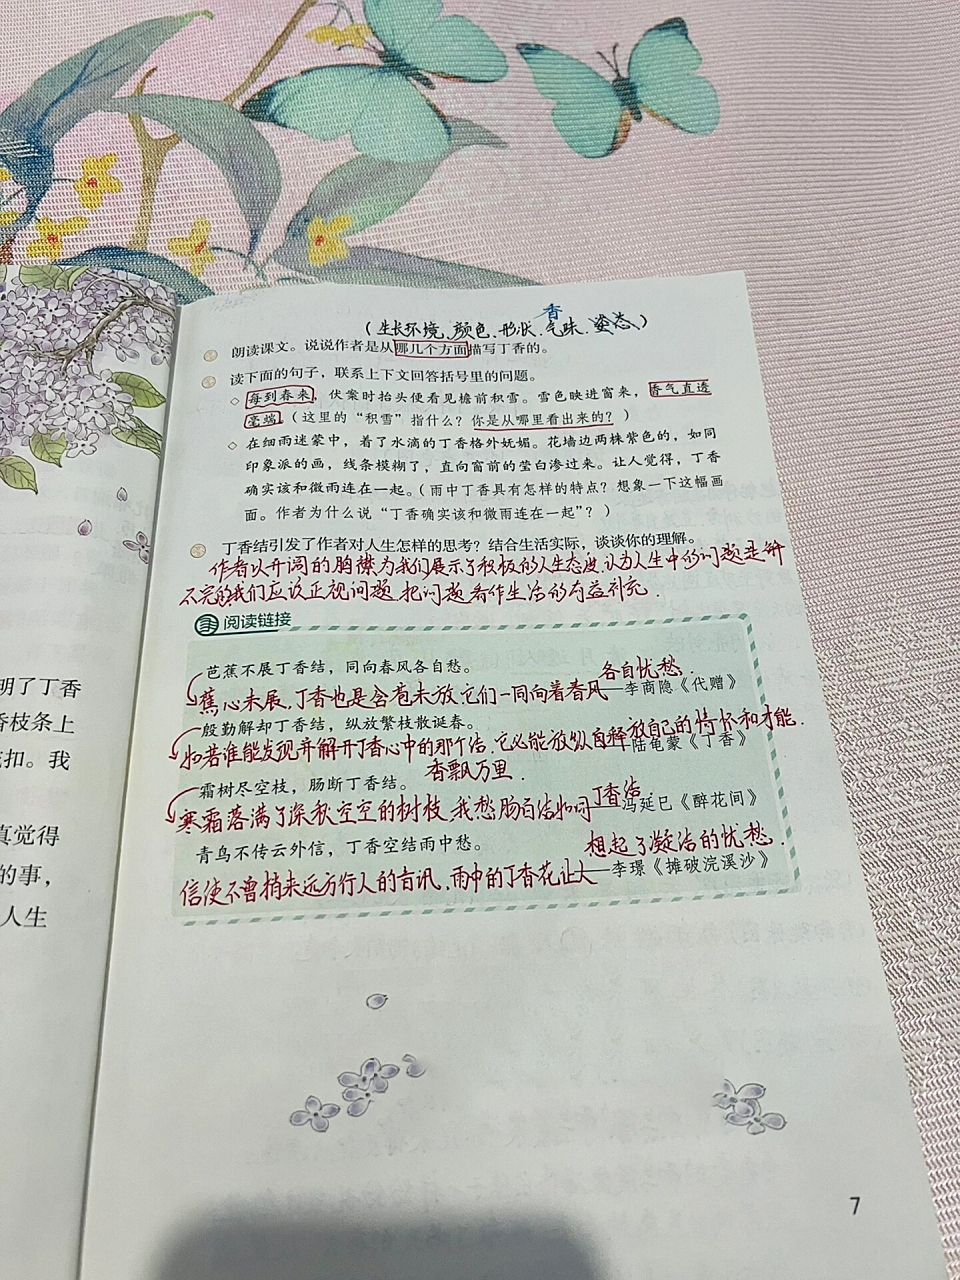 香
（生长环境、颜色、形状、气味、姿态、）
朗读课文。说说作者是从哪几个方面描写丁香的。
读下面的句子，联系上下文回答括号里的问题。
◇ 每到春来，伏案时抬头便看见檐前积雪。雪色映进窗来，香气直透
毫端。（这里的“积雪”指什么？你是从哪里看出来的？）
◇ 在细雨迷蒙中，着了水滴的丁香格外妩媚。花墙边两株紫色的，如同
印象派的画，线条模糊了，直向窗前的莹白渗过来。让人觉得，丁香
确实该和微雨连在一起。（雨中丁香具有怎样的特点？想象一下这幅画
面。作者为什么说“丁香确实该和微雨连在一起”？）
丁香结引发了作者对人生怎样的思考？结合生活实际，谈谈你的理解。
作者以开阔的胸襟为我们展示了积极的人生态度,认为人生中的问题是解
不完的,我们应该正视问题,把问题看作生活的有益补充.
阅读链接
芭蕉不展丁香结，同向春风各自愁。
各自忧愁.
蕉心未展,丁香也是含苞未放,它们一同向着春风
——李商隐《代赠》
殷勤解却丁香结，纵放繁枝散诞春。
如若谁能发现并解开丁香心中的那个结,它必能放纵自释放自己的情怀和才能.
——陆龟蒙《丁香》
香飘万里.
霜树尽空枝，肠断丁香结。
丁香结.
寒霜落满了深秋空空的树枝,我愁肠百结如同
——冯延巳《醉花间》
青鸟不传云外信，丁香空结雨中愁。
想起了凝结的忧愁.
信使不曾捎来远方行人的音讯,雨中的丁香花让人
——李璟《摊破浣溪沙》
7
明了丁香
香枝条上
扣。我
真觉得
的事，
人生